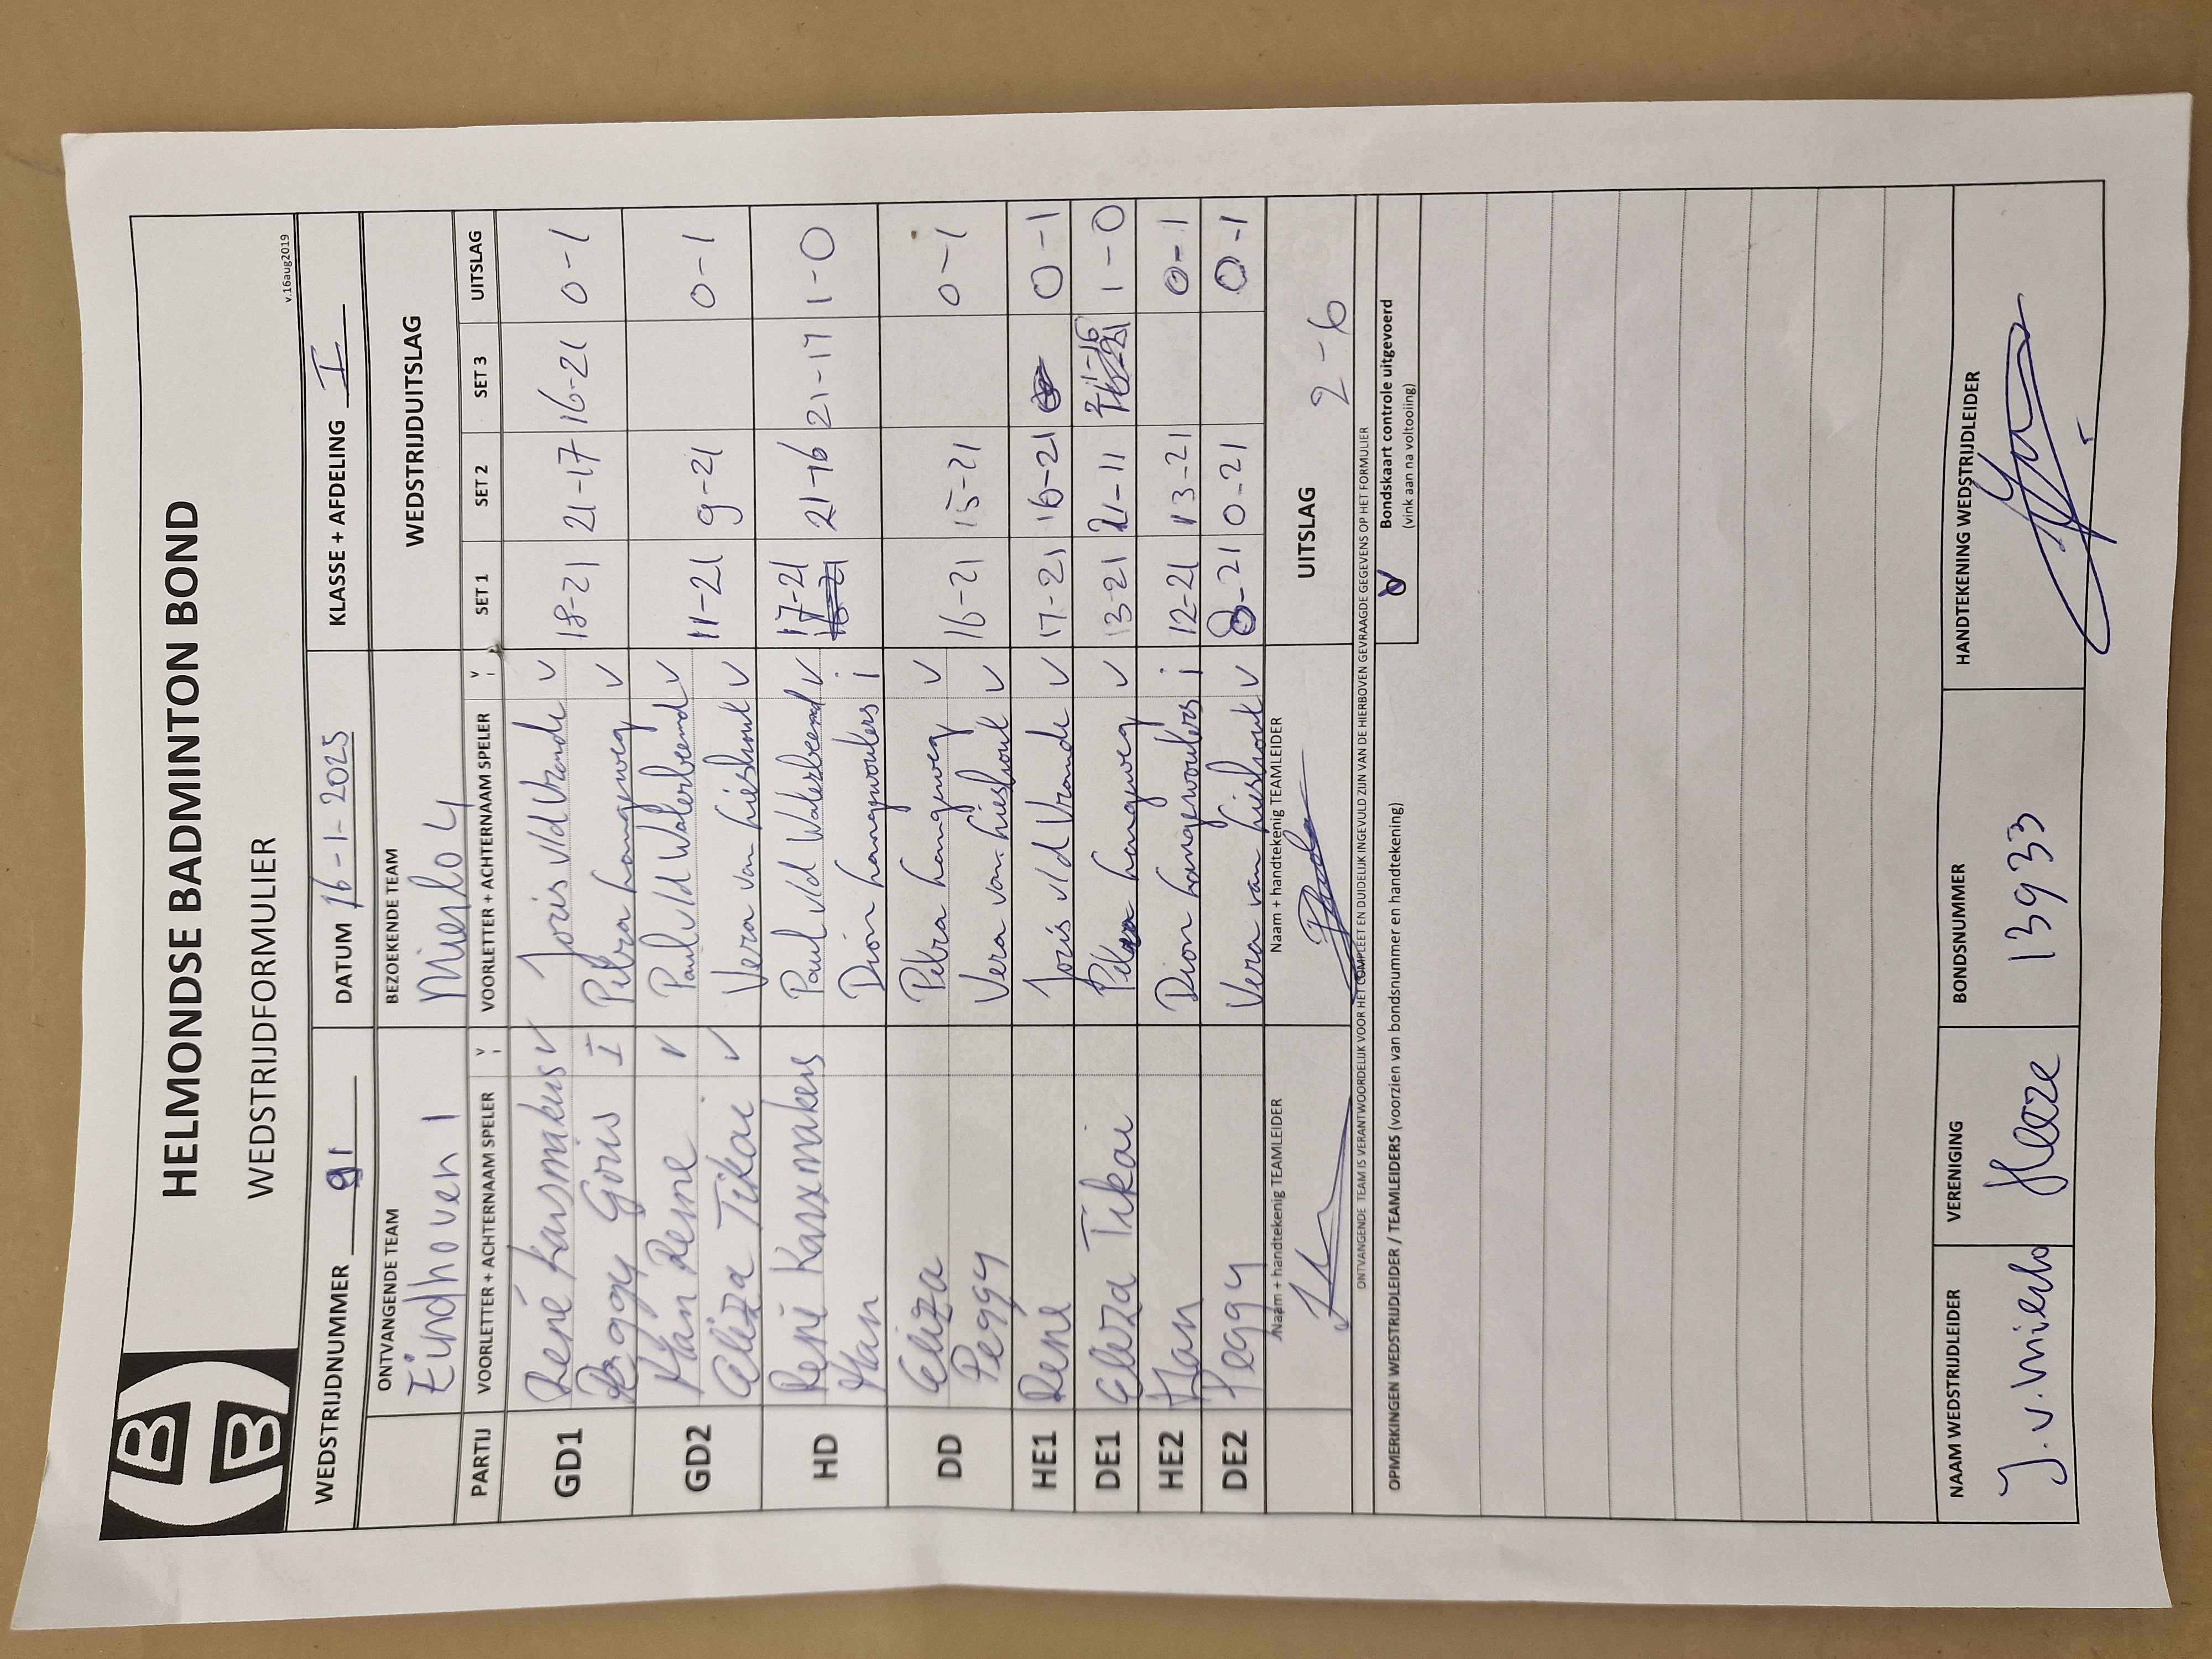 HELMONDSE BADMINTON BOND
WEDSTRIJDFORMULIER
v.16aug2019
WEDSTRIJDNUMMER 91 DATUM 16-1-2025 KLASSE + AFDELING I
ONTVANGENDE TEAM BEZOEKENDE TEAM WEDSTRIJDUITSLAG
Eindhoven 1 Mierlo 4
PARTIJ VOORLETTER + ACHTERNAAM SPELER V I VOORLETTER + ACHTERNAAM SPELER V I SET 1 SET 2 SET 3 UITSLAG
GD1 René V Joris v/d Vrande V 18-21 21-17 16-21 0-1
Peggy Goris I Petra Langeweg V
GD2 Han Renne V Paul v/d Waterbeemd V 11-21 9-21 0-1
Eliza Tikai V Vera van Lieshout V
HD René Paul v/d Waterbeemd V 17-21 21-16 21-17 1-0
Han Dion Langewouters i
DD Eliza Petra Langeweg V 16-21 15-21 0-1
Peggy Vera van Lieshout V
HE1 René Joris v/d Vrande V 17-21 16-21 0-1
DE1 Eliza Tikai Petra Langeweg V 13-21 21-11 21-16 1-0
HE2 Han Dion Langewouters i 12-21 13-21 0-1
DE2 Peggy Vera van Lieshout V 0-21 0-21 0-1
Naam + handtekenig TEAMLEIDER Naam + handtekenig TEAMLEIDER UITSLAG 2-6
ONTVANGENDE TEAM IS VERANTWOORDELIJK VOOR HET COMPLEET EN DUIDELIJK INGEVULD ZIJN VAN DE HIERBOVEN GEVRAAGDE GEGEVENS OP HET FORMULIER
OPMERKINGEN WEDSTRIJDLEIDER / TEAMLEIDERS (voorzien van bondsnummer en handtekening)
V Bondskaart controle uitgevoerd
(vink aan na voltooiing)
NAAM WEDSTRIJDLEIDER VERENIGING BONDSNUMMER HANDTEKENING WEDSTRIJDLEIDER
J. v. Mierlo Heeze 13933